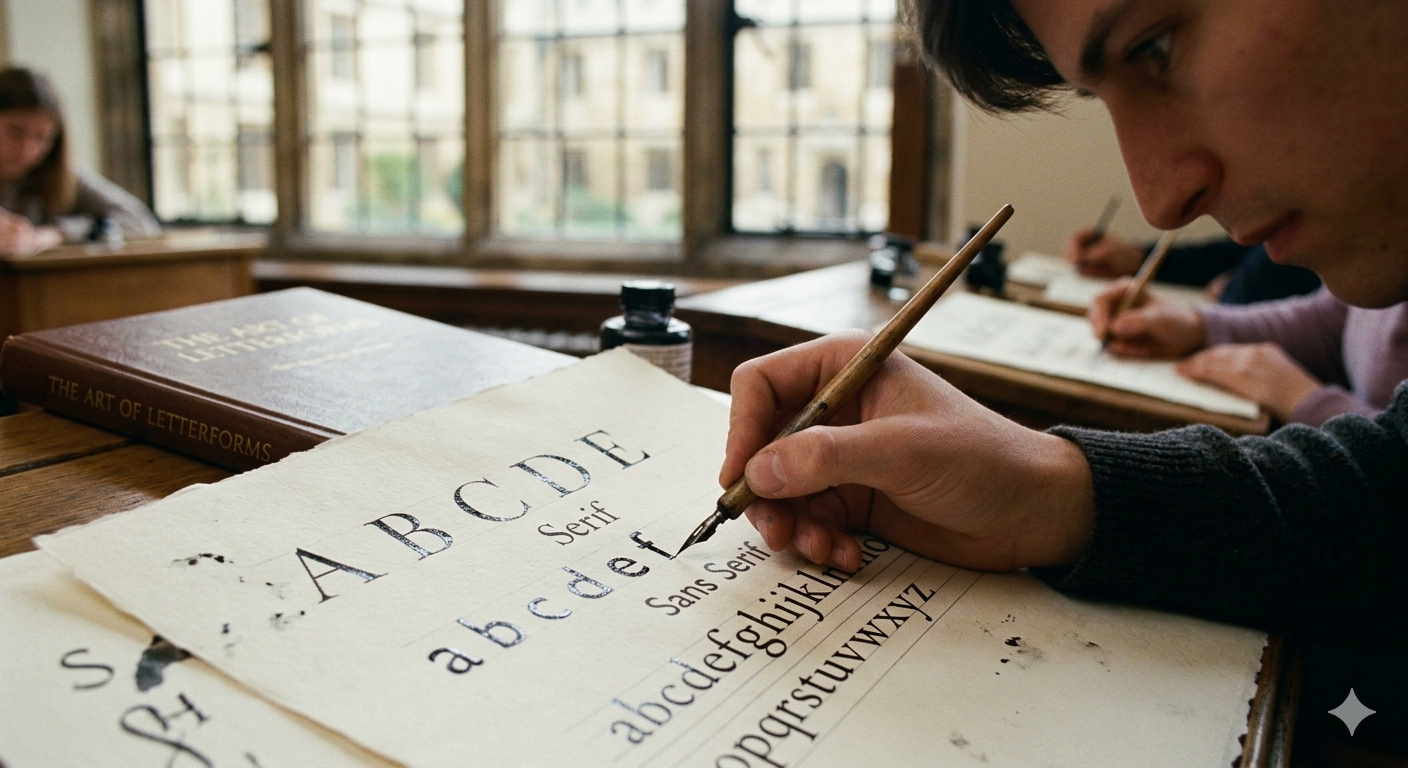 THE ART
THE ART OF LETTERFORMS
A B C D E
Serif
a b c d e f
Sans Serif
abcdefghijklmno
opqrstuvwxyz
S